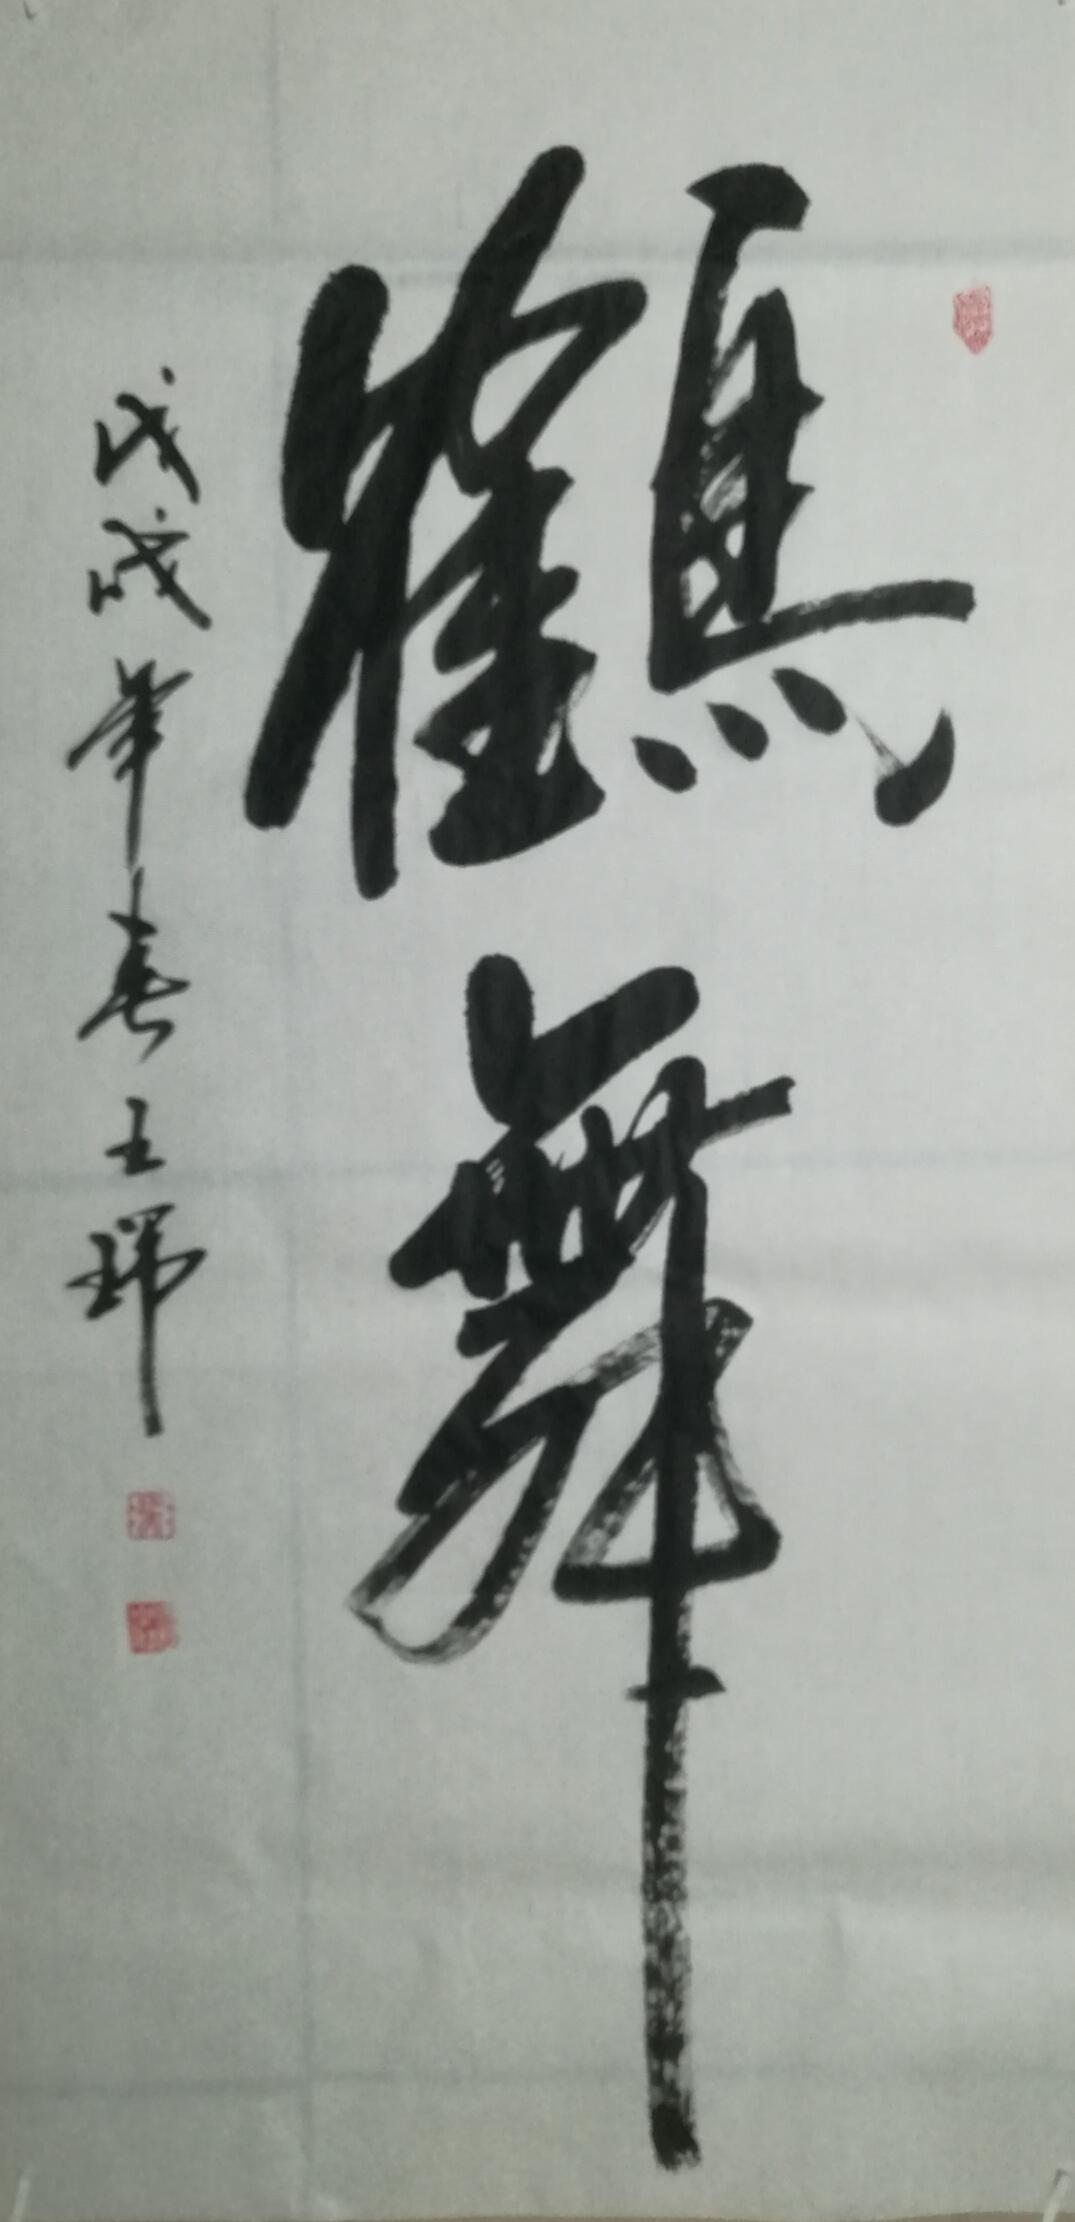 鶴舞
戊戌年春王瑞